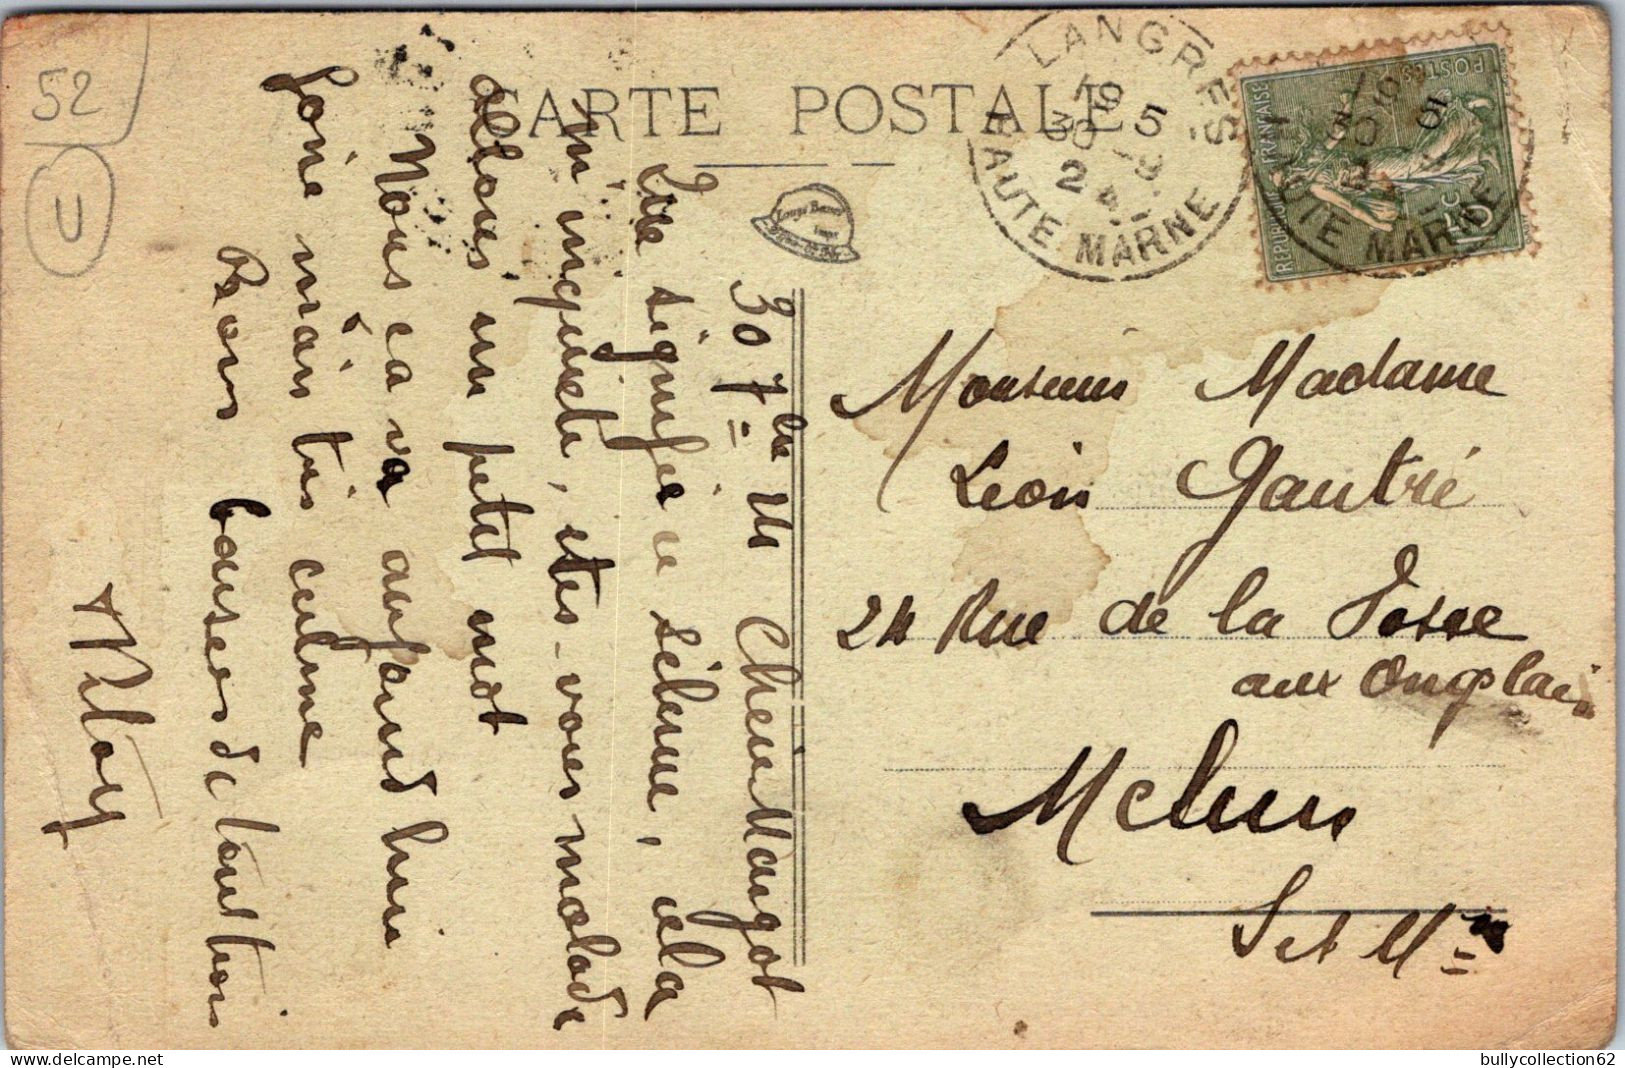 52
U
CARTE POSTALE
LANGRES
19 5
30 -9
24
HAUTE MARNE
REPUBLIQUE FRANÇAISE
POSTES
15c
HAUTE MARNE
30 7bre 24 Chère Margot
Que signifie ce silence, cela
m'inquiete, etes-vous malade
allons un petit mot
Nous ça va aujourd'hui
foire mais très calme
Bons baisers de tout
Monsieur Madame
Léon Gautré
24 Rue de la Fosse
aux Onglais
Melun
S et M
bullycollection62